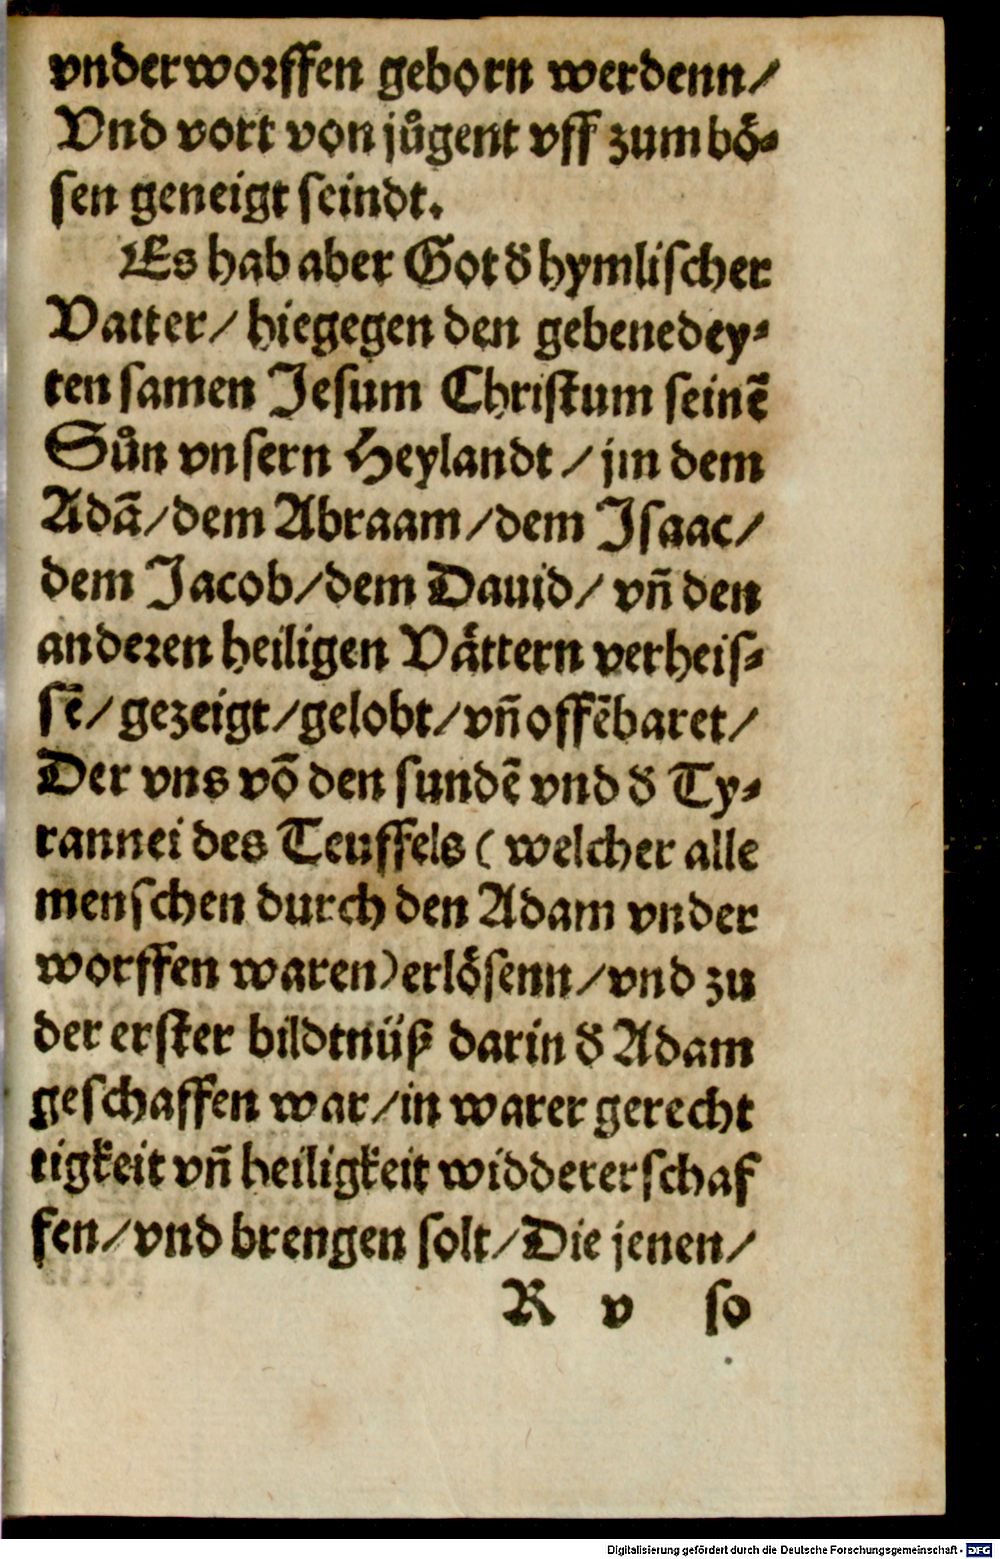 vnderworffen geborn werdenn/
Vnd vort von jůgent vff zum bö⸗
sen geneigt seindt.
Es hab aber Got d̄ hymlischer
Vatter/ hiegegen den gebenedey⸗
ten samen Jesum Christum seinē
Sůn vnsern Heylandt / jm dem
Adā/dem Abraam/dem Jsaac/
dem Jacob/dem Dauid/ vn̄ den
anderen heiligen Vättern verheis⸗
sē/gezeigt/gelobt/vn̄ offēbaret/
Der vns vō den sundē vnd d̄ Ty⸗
rannei des Teuffels ( welcher alle
menschen durch den Adam vnder
worffen waren) erlösenn/vnd zu
der erster bildtnüß darin d̄ Adam
geschaffen war/in warer gerecht
tigkeit vn̄ heiligkeit widdererschaf
fen/vnd brengen solt/Die jenen/
R v so
Digitalisierung gefördert durch die Deutsche Forschungsgemeinschaft - DFG